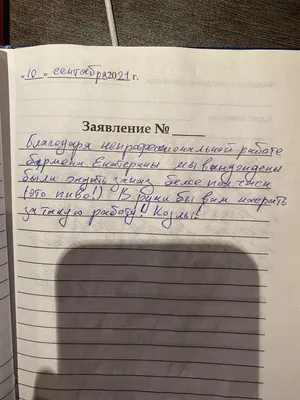 « 10 » сентября 2021 г.
Заявление №
Благодаря непрофесиональной работе
бармена Екатерины мы вынуждены
были ждать заказ более пол часа
(это пиво!) В руки бы вам насрать
за такую работу! Козлы!